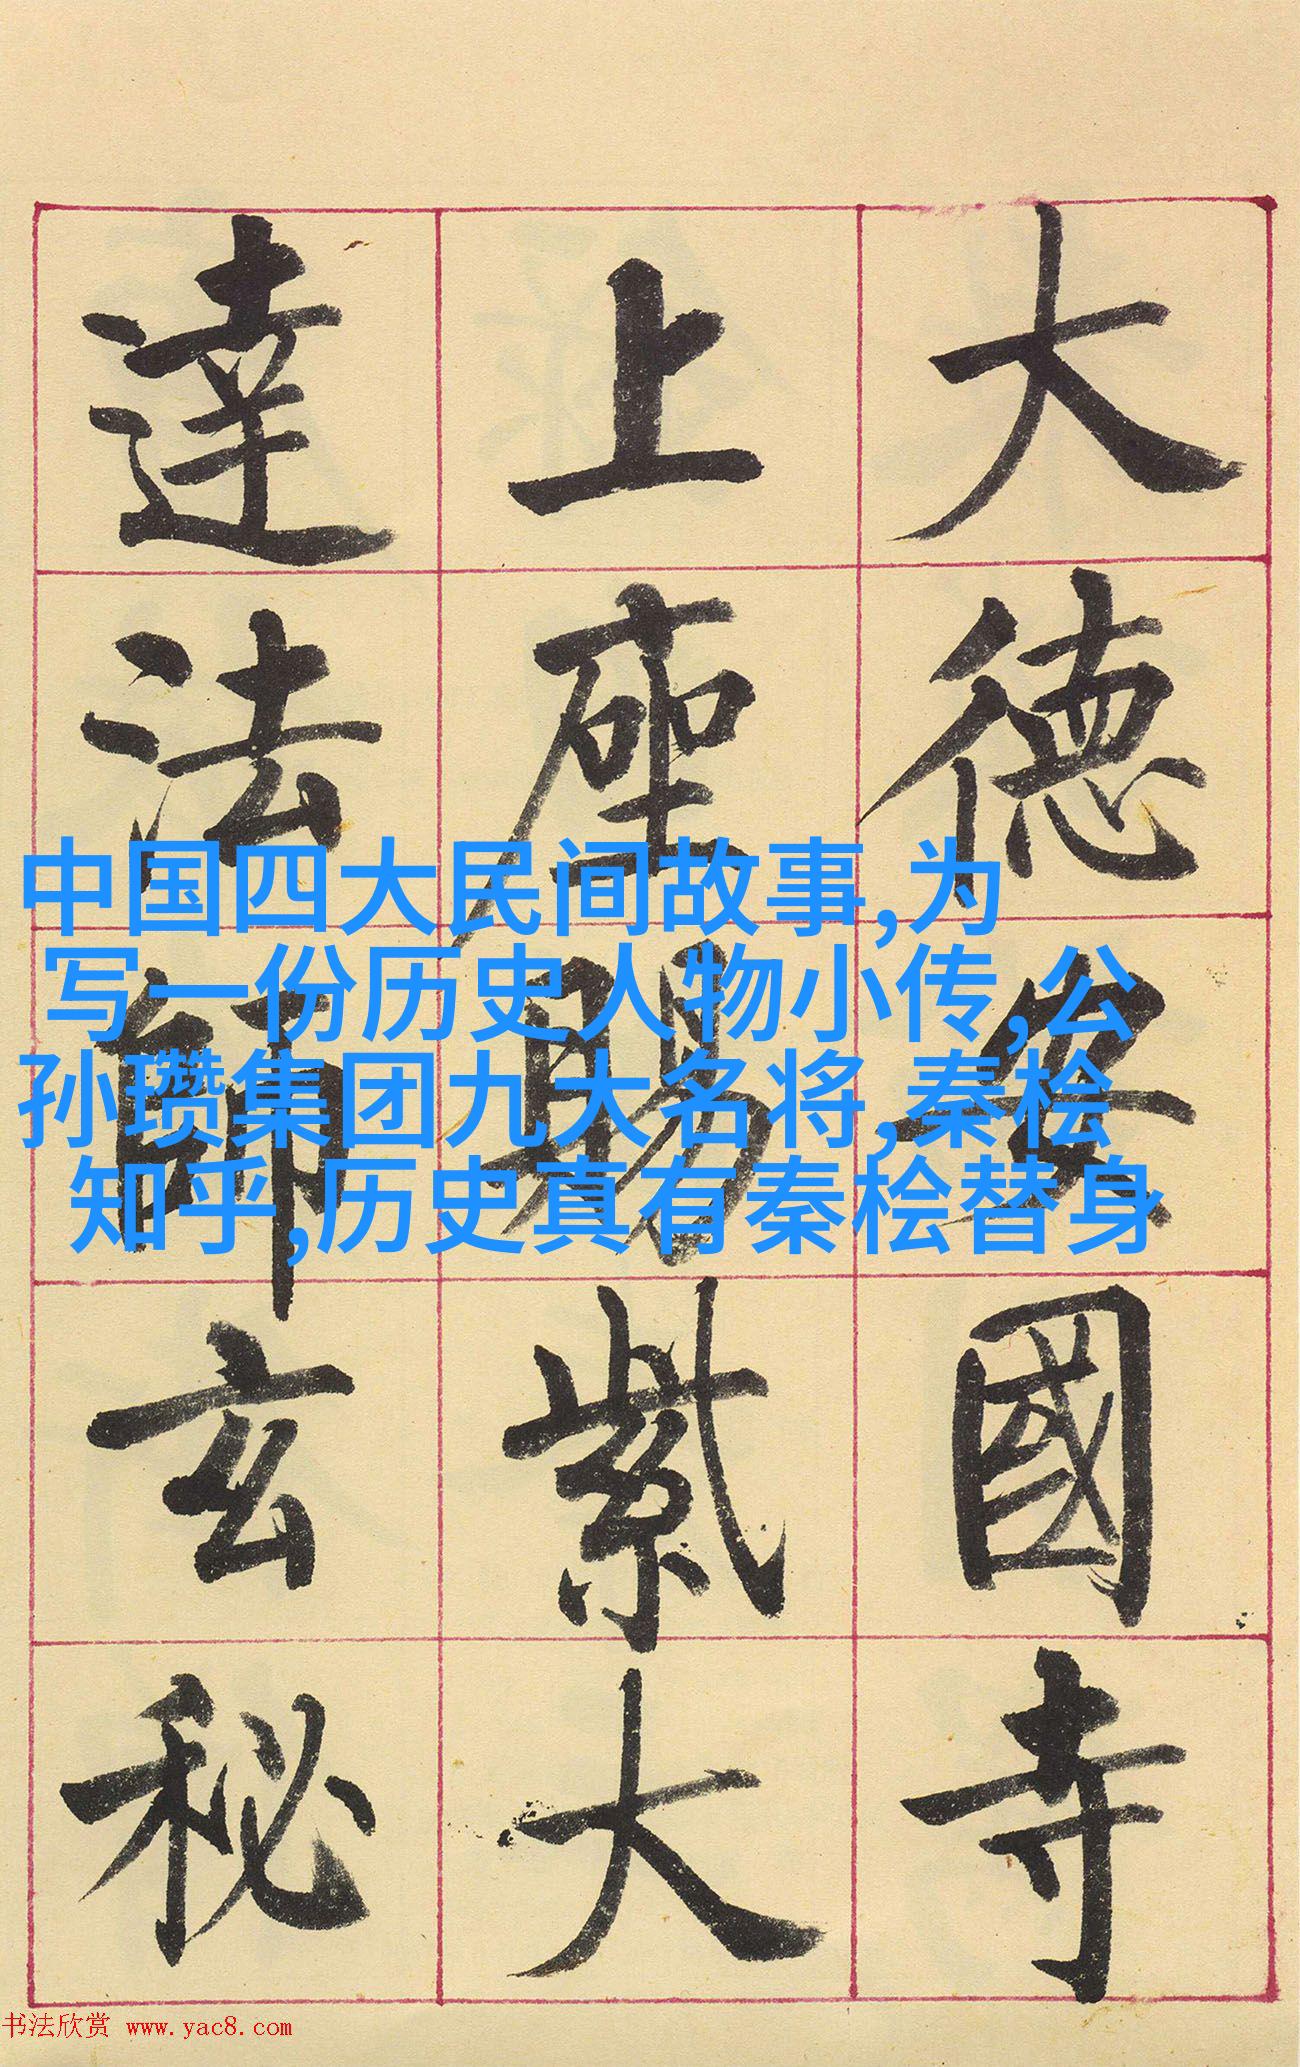 大德安國寺
上座賜紫大
達法師玄秘
中国四大民间故事,为
写一份历史人物小传,公
孙瓒集团九大名将,秦桧
知乎,历史真有秦桧替身
书法欣赏 www.yac8.com